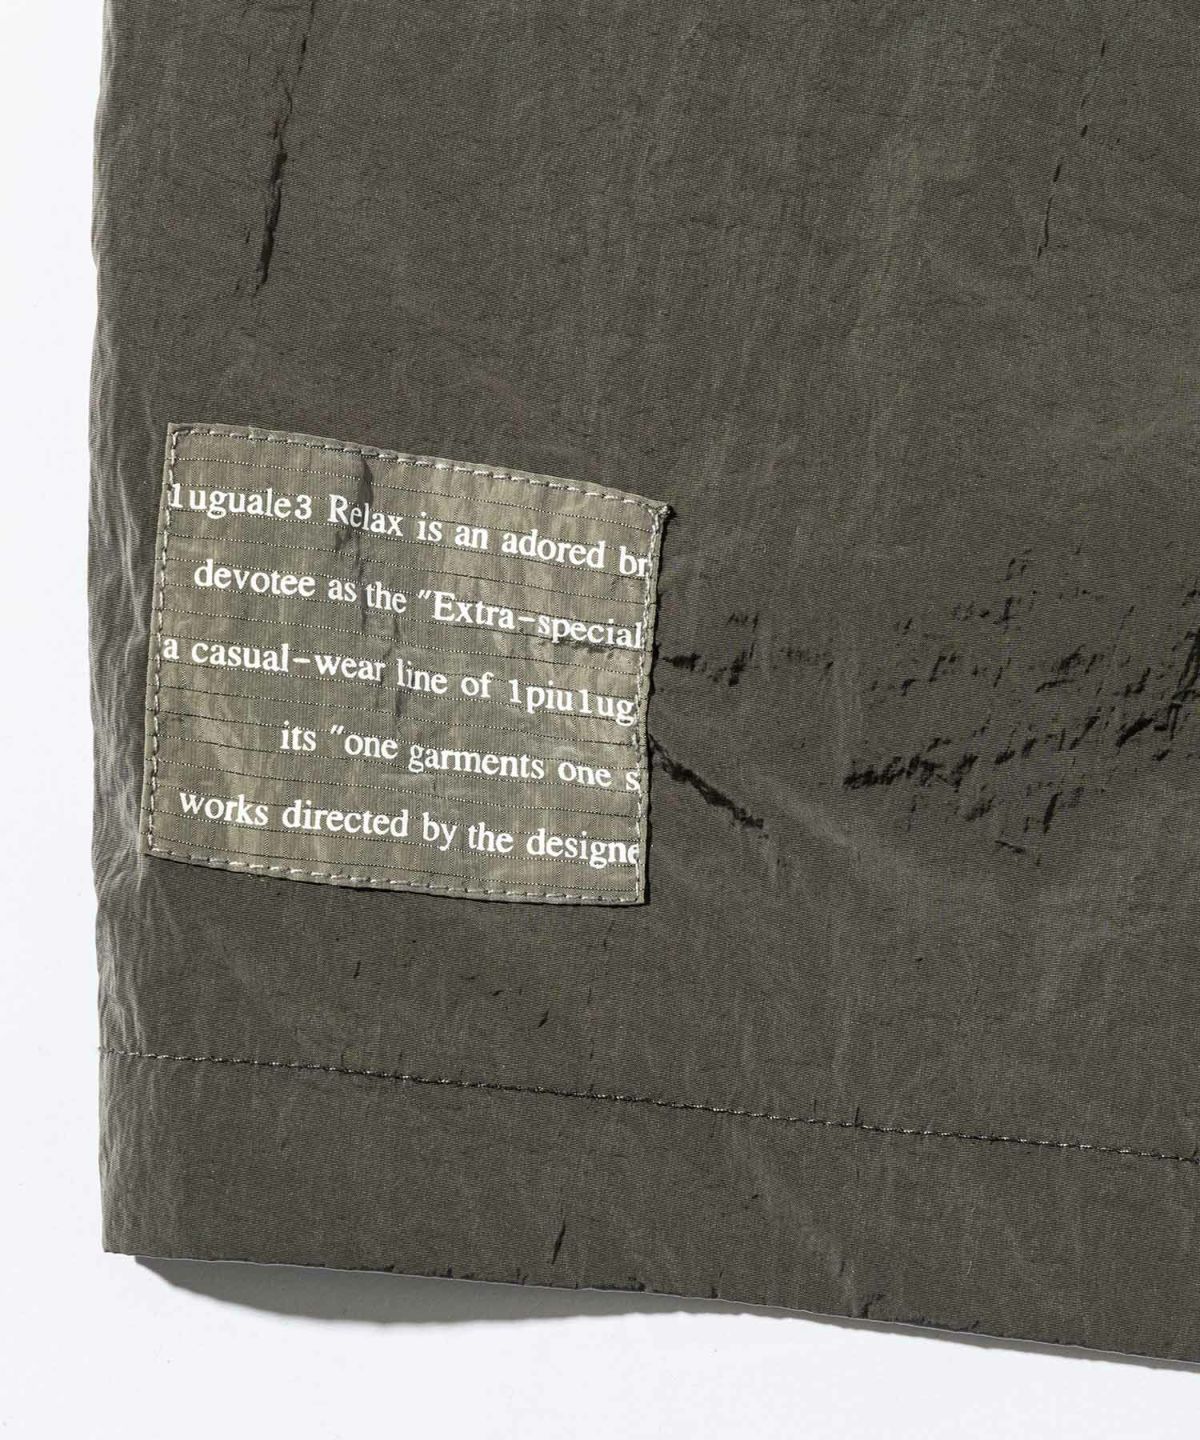 1uguale3 Relax is an adored br
devotee as the "Extra-special
a casual-wear line of 1piu1ug
its "one garments one s
works directed by the designe